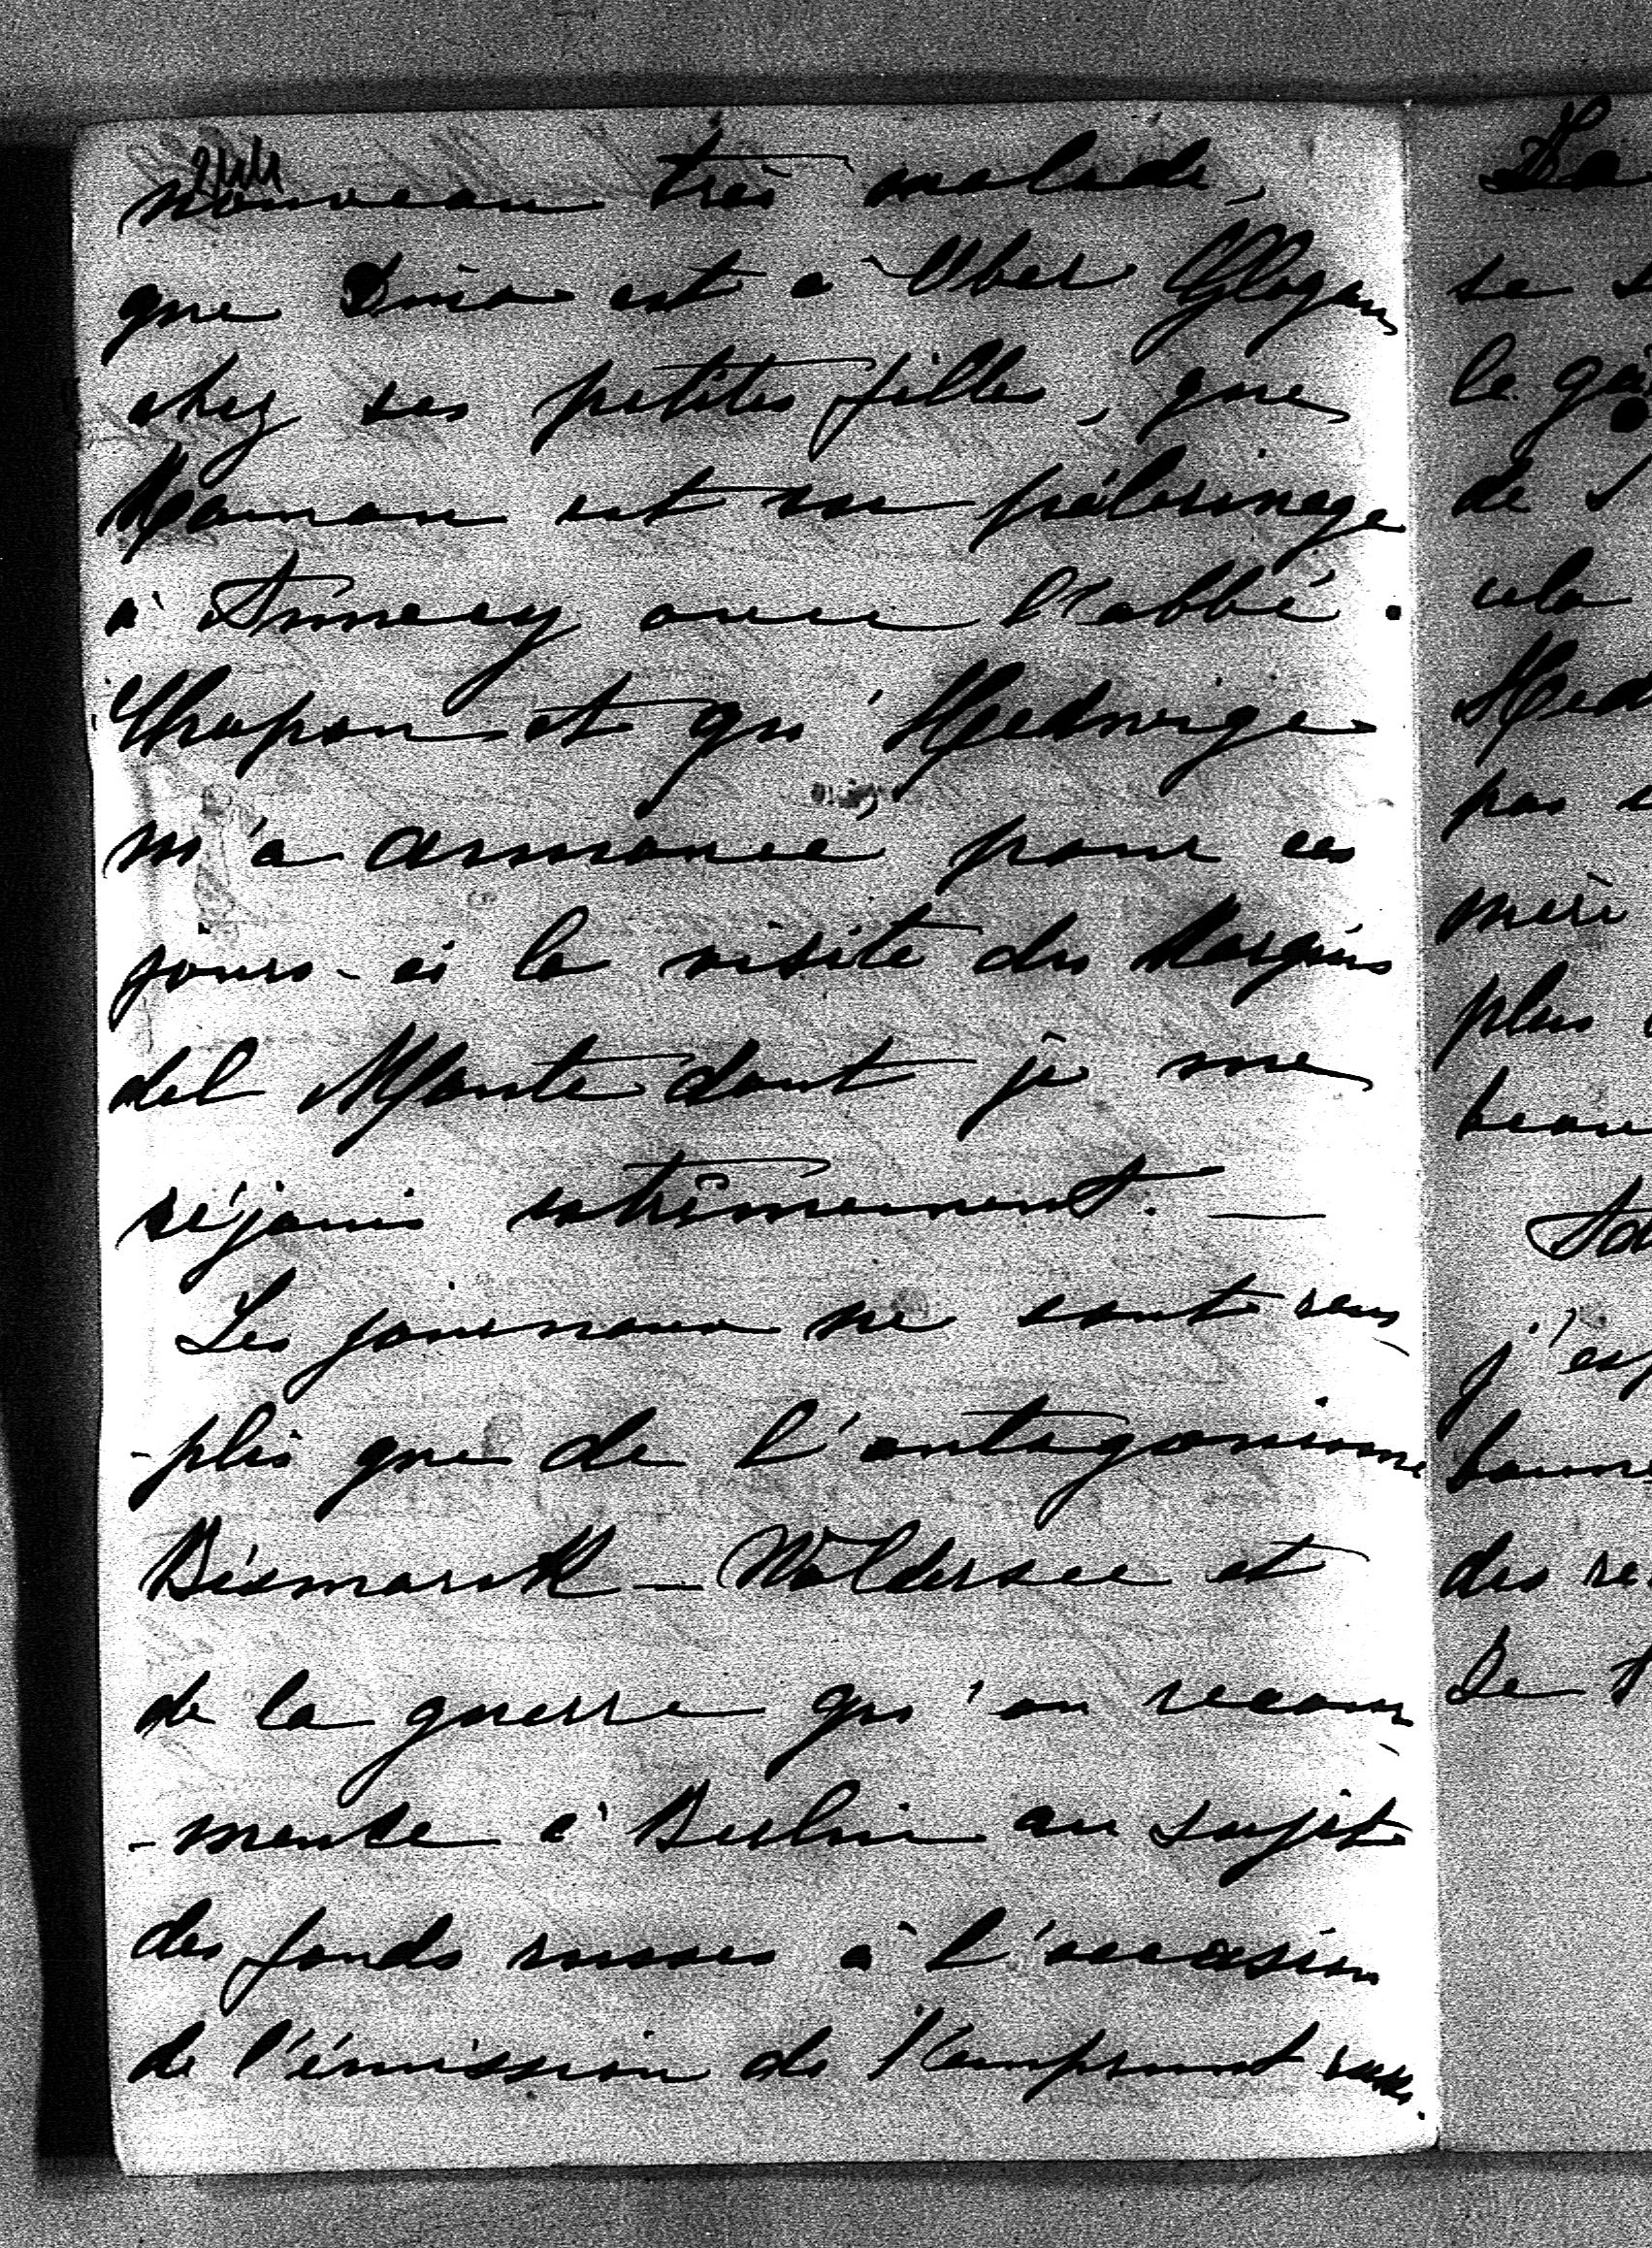 244
nouveau très malade,
que Dino est à Ober Glogau
chez ses petites filles, que
Maman est en pélerinage
à Annecy avec l'abbé
Chapon et qu'Hedwige
m'a annoncé pour ces
jours-ci la visite du Marquis
del Monte dont je me
réjouis extrêmement. —
Les journaux ne sont rem
-plis que de l'antagonisme
Bismarck - Waldersee et
de la guerre qu'on recom-
-mence à Berlin au sujet
des fonds russes à l'occasion
de l'émission de l'emprunt russe.
se
de
cela
mère
plus
des
De